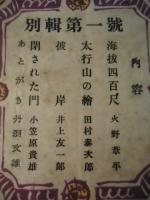 別輯第一號
内容
海抜四百尺 火野葦平
太行山の繪 田村泰次郎
彼岸 井上友一郎
閉された門 小笠原貴雄
あとがき 丹羽文雄